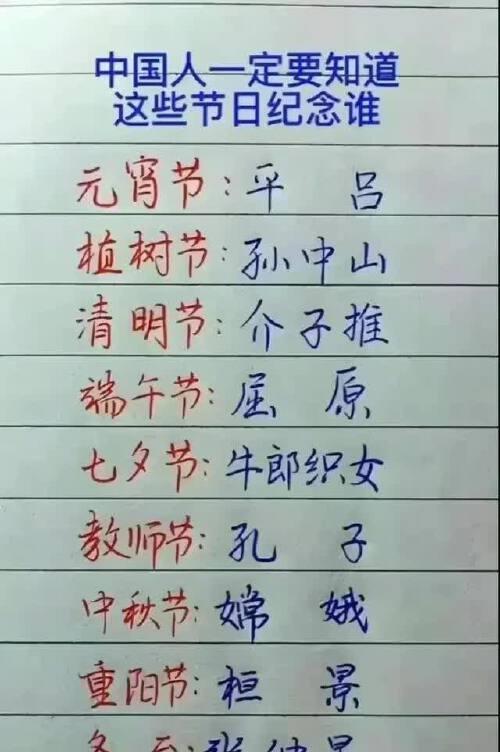 中国人一定要知道
这些节日纪念谁
元宵节：平 吕
植树节：孙中山
清明节：介子推
端午节：屈 原
七夕节：牛郎织女
教师节：孔 子
中秋节：嫦 娥
重阳节：桓 景